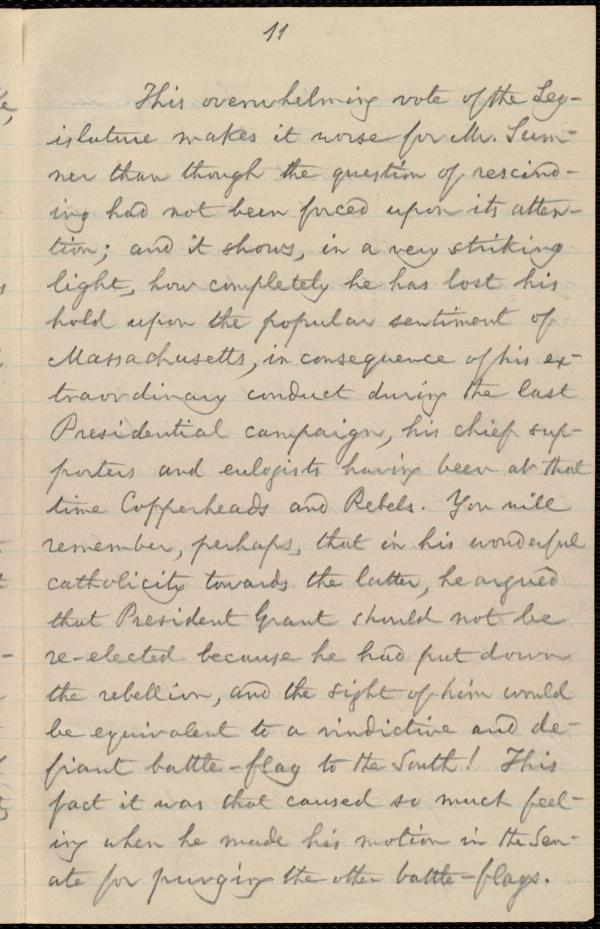 11
This overwhelming vote of the Leg-
islature makes it worse for Mr. Sum-
ner than though the question of rescind-
ing had not been forced upon its atten-
tion; and it shows, in a very striking
light, how completely he has lost his
hold upon the popular sentiment of
Massachusetts, in consequence of his ex-
traordinary conduct during the last
Presidential campaign, his chief sup-
porters and eulogists having been at that
time Copperheads and Rebels. You will
remember, perhaps, that in his wonderful
catholicity towards the latter, he argued
that President Grant should not be
re-elected because he had put down
the rebellion, and the sight of him would
be equivalent to a vindictive and de-
fiant battle-flag to the South! This
fact it was that caused so much feel-
ing when he made his motion in the Sen-
ate for purging the other battle-flags.